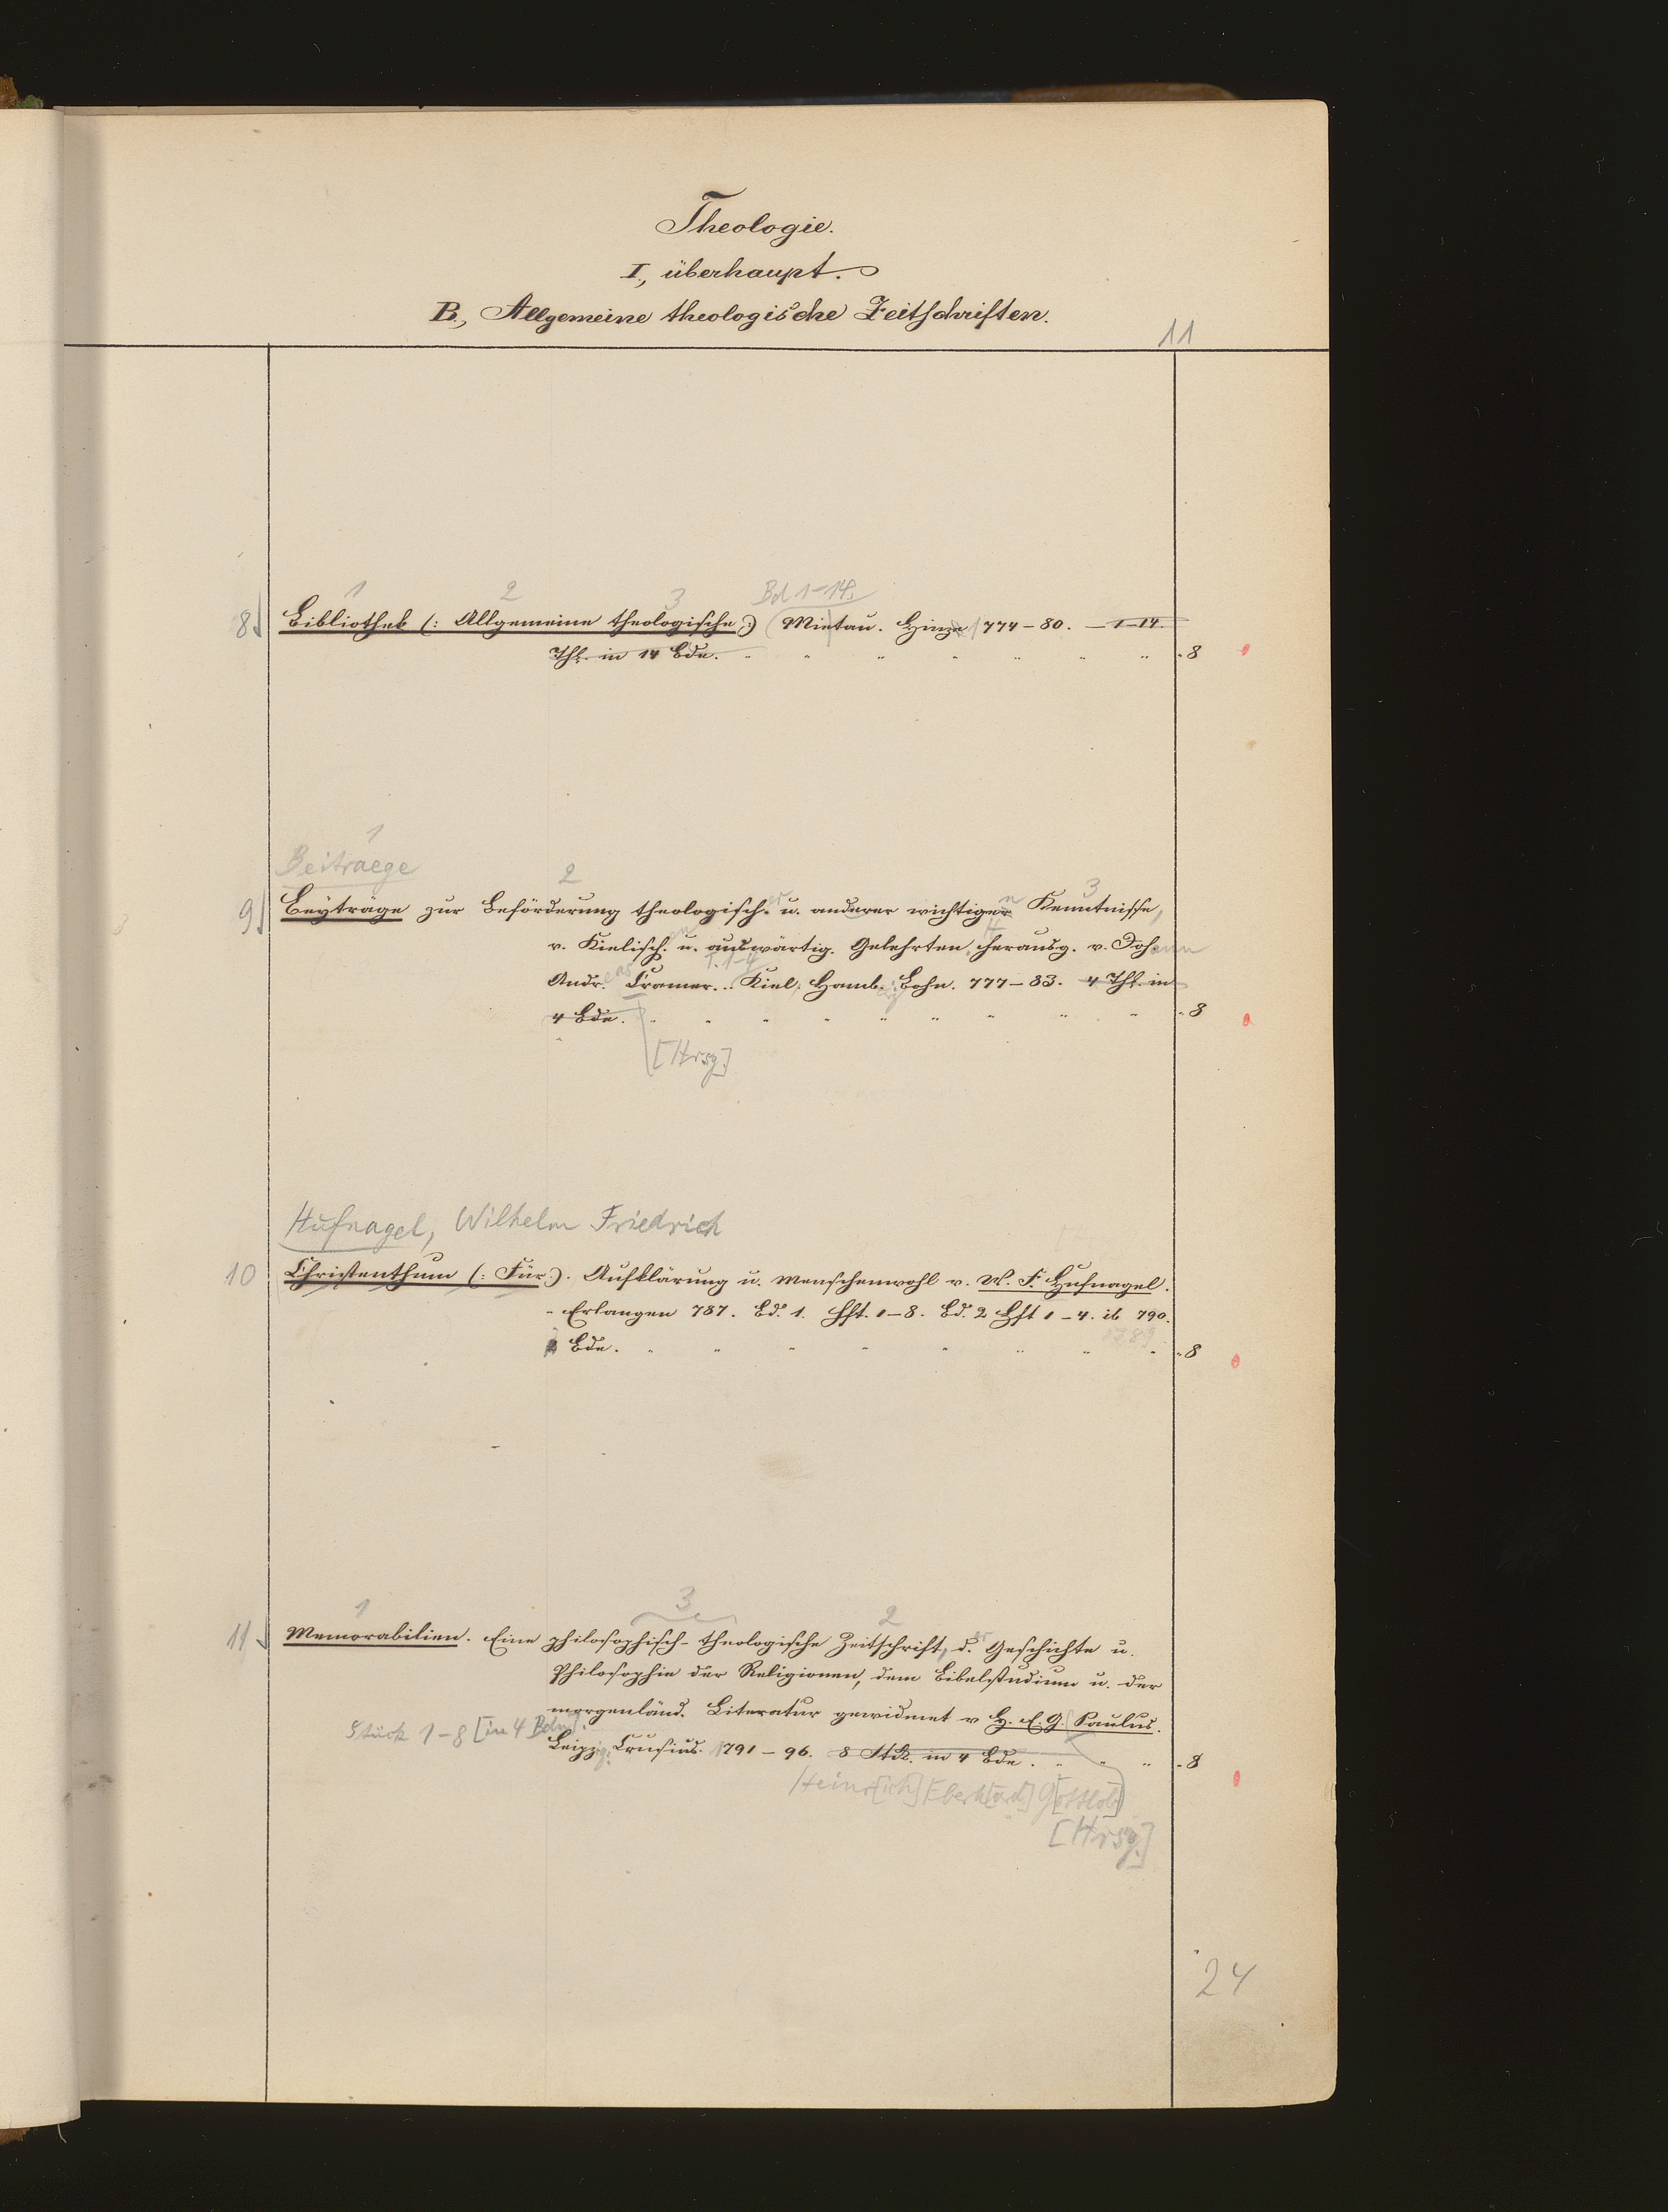 Theologie.
I., überhaupt.
B., Allgemeine theologische Zeitschriften.
11
1 2 3 Bd 1-14.
8 Bibliothek (: Allgemeine theologische :) Mietau. Hinze 774-80. 1-14.
Thl. in 14 Bde. " " " " " " " 8
1
Beitraege 2 3
9 Beyträge zur Beförderung theologisch. u. anderer wichtiger Kenntnisse,
v. Kielisch. u. auswärtig. Gelehrten, herausg. v. Johann
T. 1-4
Andreas Cramer. Kiel, Hamb. Bohn. 777-83. 4 Thl. in
4 Bde. " " " " " " " " " 8
[Hrsg.]
Hufnagel, Wilhelm Friedrich
10 Christenthum (: Für :). Aufklärung u. Menschenwohl v. W. F. Hufnagel.
Erlangen 787. Bd. 1. Hft. 1-8. Bd. 2 Hft 1-4. ib 790.
1789
Bde. " " " " " " " " 8
1 3 2
11 Memorabilien. Eine philosophisch-theologische Zeitschrift, der Geschichte u.
Philosophie der Religionen, dem Bibelstudium u. der
morgenländ. Literatur gewidmet v H. E. G. Paulus.
Stück 1-8 [in 4 Bdn].
Leipzig. Crusius. 1791-96. 8 Stck. in 4 Bde. " " " 8
Heinr[ich] Eberh[ard] G[ottlob]
[Hrsg.]
24